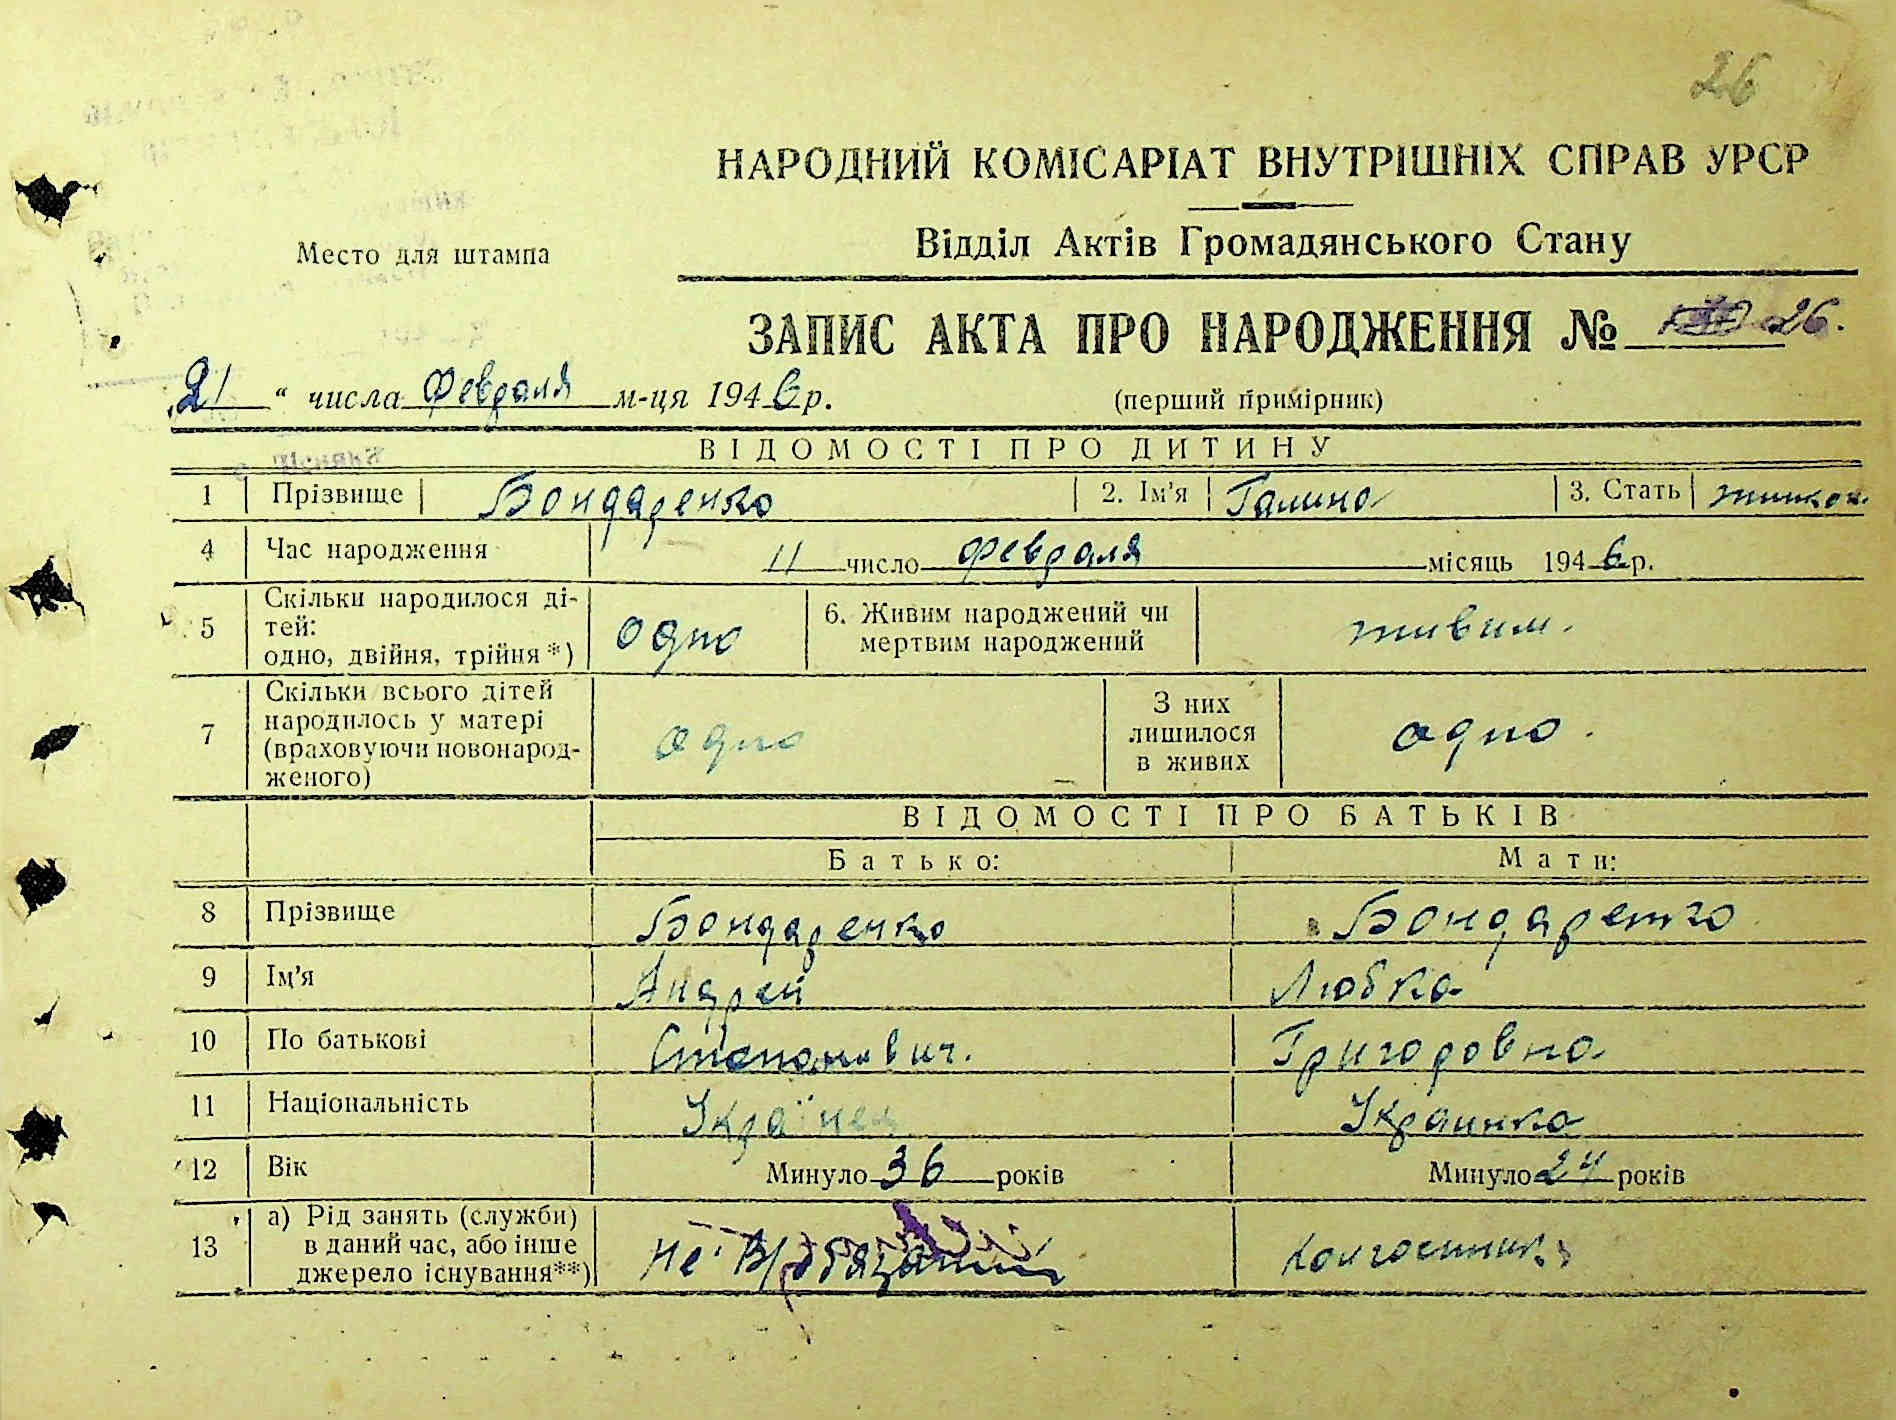 26
НАРОДНИЙ КОМІСАРІАТ ВНУТРІШНІХ СПРАВ УРСР
Место для штампа
Відділ Актів Громадянського Стану
ЗАПИС АКТА ПРО НАРОДЖЕННЯ № 26.
„21 “ числа Февраля м-ця 1946 р.
(перший примірник)
ВІДОМОСТІ ПРО ДИТИНУ
1 Прізвище Бондаренко 2. Ім'я Галина 3. Стать
4 Час народження 11 число февраля місяць 1946 р.
5 Скільки народилося ді-
тей:
одно, двійня, трійня*) одно 6. Живим народжений чи
мертвим народжений живим.
7 Скільки всього дітей
народилось у матері
(враховуючи новонарод-
женого) одно З них
лишилося
в живих одно.
ВІДОМОСТІ ПРО БАТЬКІВ
Батько: Мати:
8 Прізвище Бондаренко Бондаренко
9 Ім'я Андрей Любка
10 По батькові Степанович. Григоровна
11 Національність Українец Украинка
12 Вік Минуло 36 років Минуло 24 років
13 а) Рід занять (служби)
в даний час, або інше
джерело існування**) не